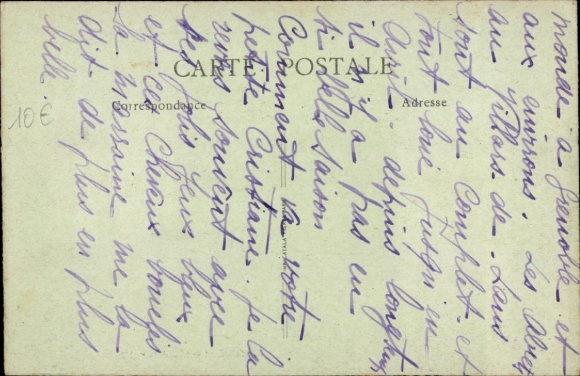 monde a Grenoble et
aux environs. Les Abrets
au Villars-de-Lans
sont au Complet et
tout loué jusqu'en
Avril. depuis longtemps
il n'y a pas eu
si belle saison
Comment va votre
petite Cristiane. je la
revois souvent avec
ses jolis yeux
et ces cheveux bouclés
la marraine me la
dit de plus en plus
belle.
CARTE POSTALE
Correspondance
Adresse
10€